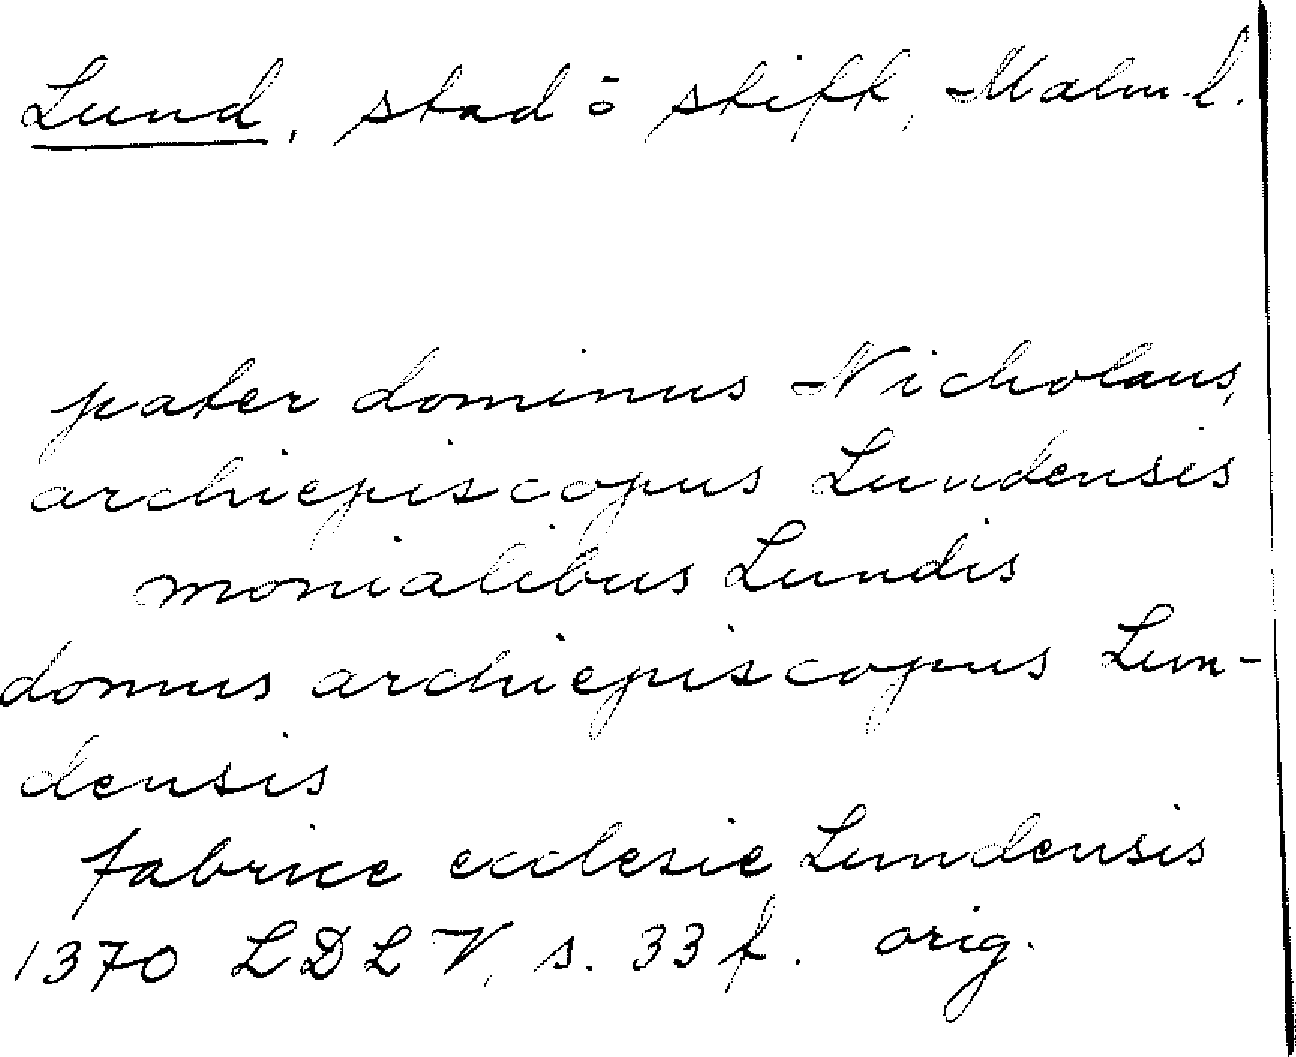 Lund, stad o stift, Malm.l.
pater dominus Nicholaus,
archiepiscopus Lundensis
monialibus Lundis
domus archiepiscopus Lun-
densis
fabrice ecclesie Lundensis
1370 LDLV, s. 33 f. orig.